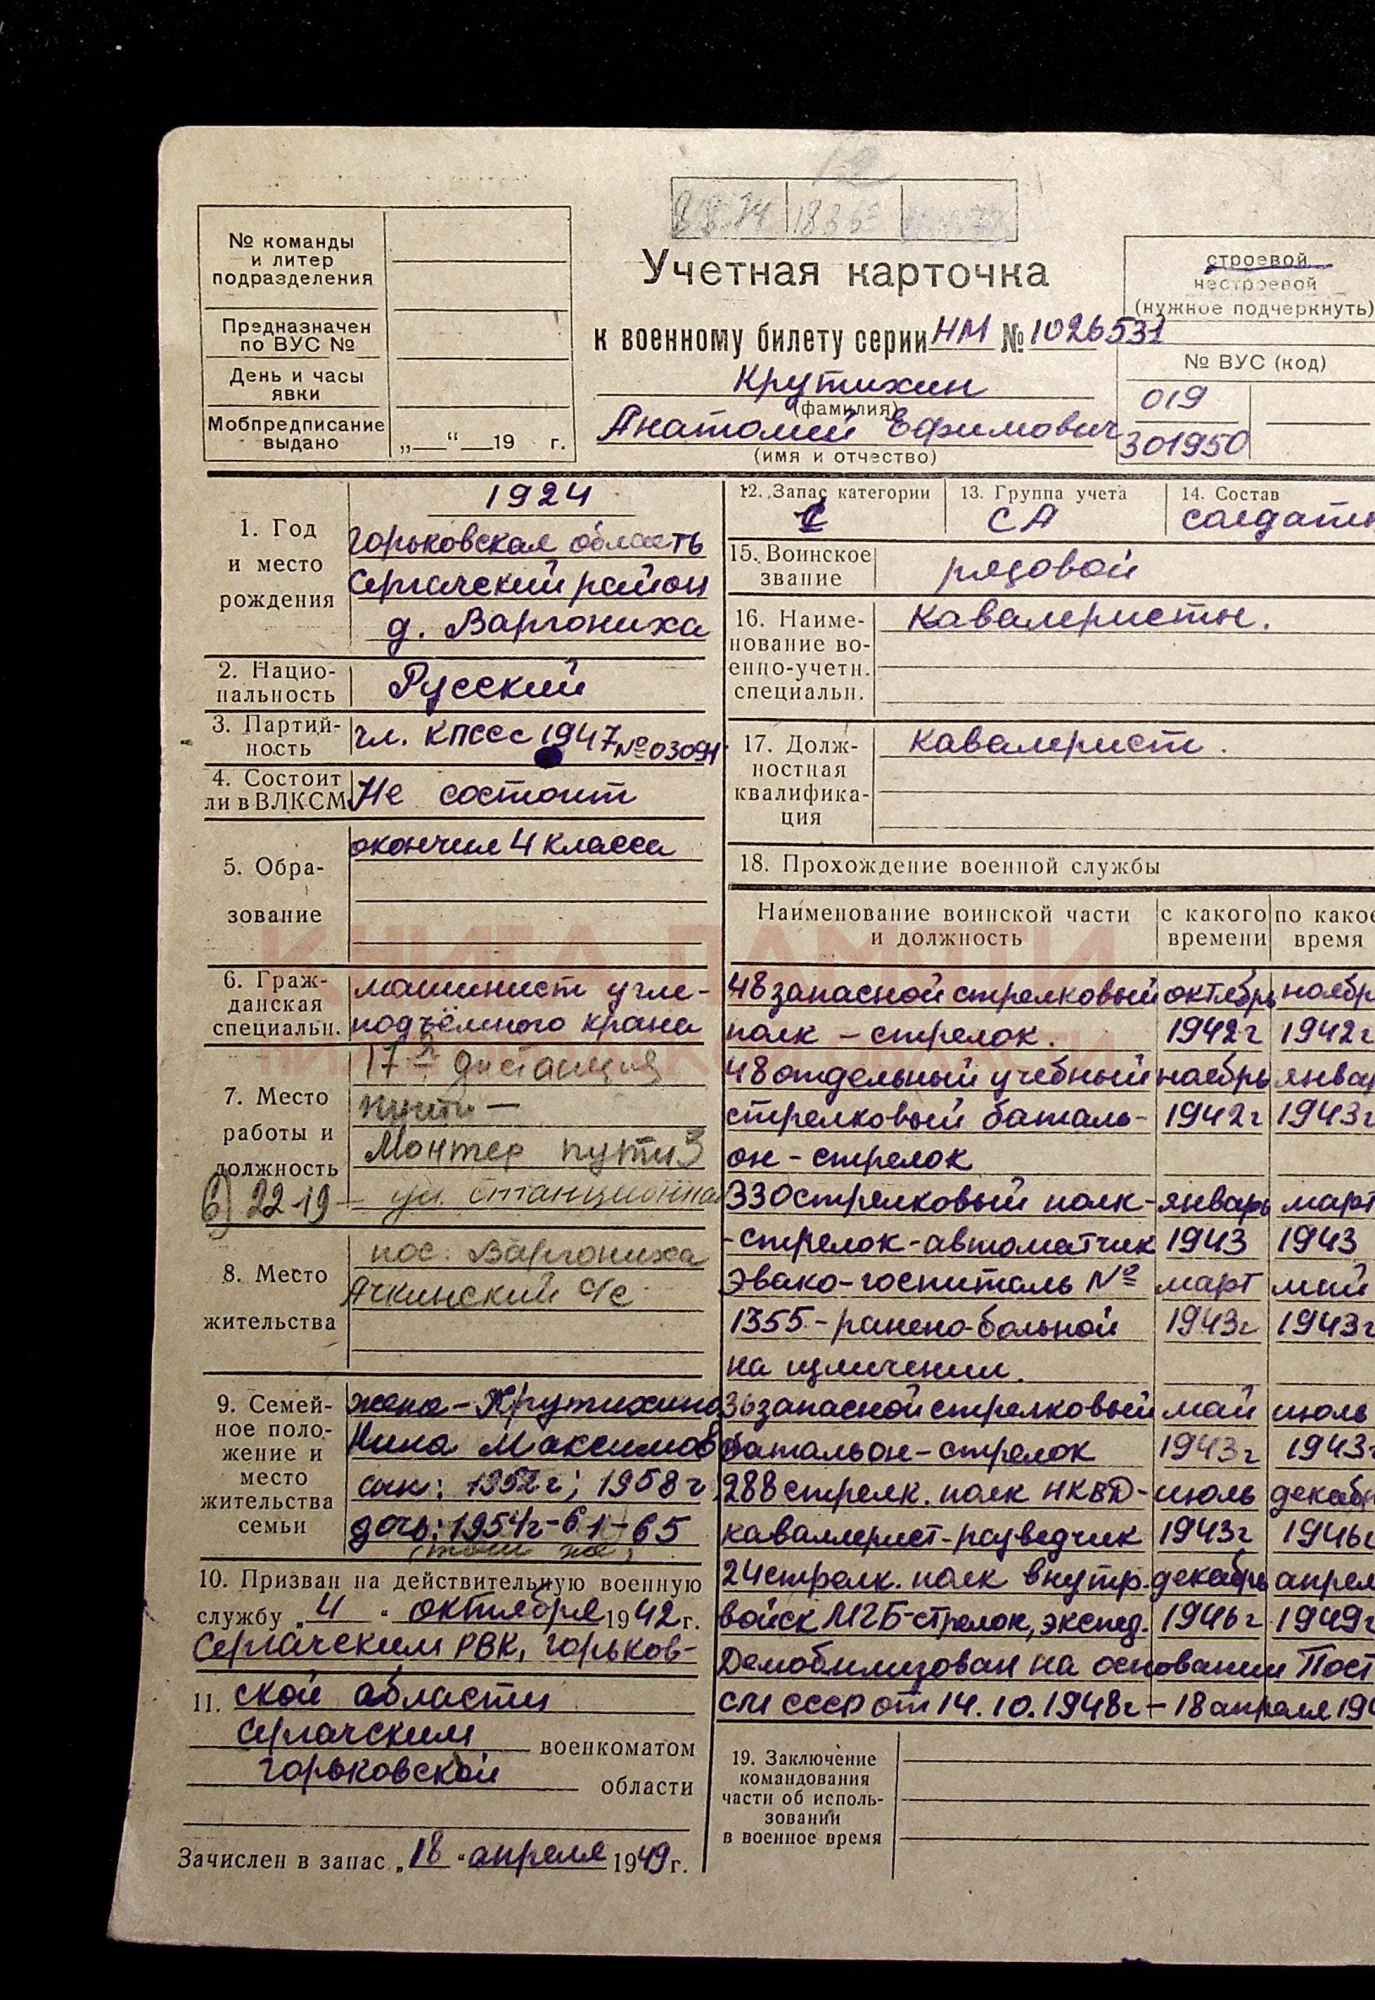 № команды
и литер
подразделения
Предназначен
по ВУС №
День и часы
явки
Мобпредписание
выдано
„ “ 19 г.
Учетная карточка
к военному билету серии НМ № 1026531
Крутихин
(фамилия)
Анатолий Ефимович
(имя и отчество)
строевой
нестроевой
(нужное подчеркнуть)
№ ВУС (код)
019
301950
1. Год
и место
рождения
1924
Горьковская область
Сергачский район
д. Варгониха
2. Нацио-
нальность
Русский
3. Партий-
ность
чл. КПСС с 1947 № 03091
4. Состоит
ли в ВЛКСМ
Не состоит
5. Обра-
зование
окончил 4 класса
6. Граж-
данская
специальн.
машинист угле-
подъёмного крана
7. Место
работы и
должность
17-я дистанция
пути —
Монтер пути 3
22-19 — ул. Станционная
8. Место
жительства
пос. Варгониха
Ачкинский с/с
9. Семей-
ное поло-
жение и
место
жительства
семьи
жена - Крутихина
Нина Максимов
сын: 1952г; 1958г;
дочь: 1954г - 61 - 65
10. Призван на действительную военную
службу „4“ октября 1942 г.
Сергачским РВК, Горьков-
11. ской области
Сергачским военкоматом
Горьковской области
Зачислен в запас „18“ апреля 1949 г.
12. Запас категории
13. Группа учета
СА
14. Состав
солдаты
15. Воинское
звание
рядовой
16. Наиме-
нование во-
енно-учетн.
специальн.
Кавалеристы.
17. Долж-
ностная
квалифика-
ция
кавалерист.
18. Прохождение военной службы
Наименование воинской части
и должность
с какого
времени
по какое
время
48 запасной стрелковый октябрь ноябр
полк - стрелок. 1942г 1942г
48 отдельный учебный ноябрь январ
стрелковый баталь- 1942г 1943г
он - стрелок
330 стрелковый полк - январь март
- стрелок-автоматчик 1943 1943
Эвако-госпиталь № март май
1355 - ранено-больной 1943г 1943г
на изличении.
36 запасной стрелковый май июль
батальон - стрелок 1943г 1943г
288 стрелк. полк НКВД - июль декабр
каваллерист-разведчик 1943г 1946г
24 стрелк. полк внутр. декабрь апрел
войск МГБ - стрелок, экспед. 1946г 1949г
Демобилизован на основании Пост
СМ СССР от 14.10.1948г - 18 апреля 194
19. Заключение
командования
части об исполь-
зовании
в военное время
КНИГА ПАМЯТИ
НИЖЕГОРОДСКОЙ ОБЛАСТИ